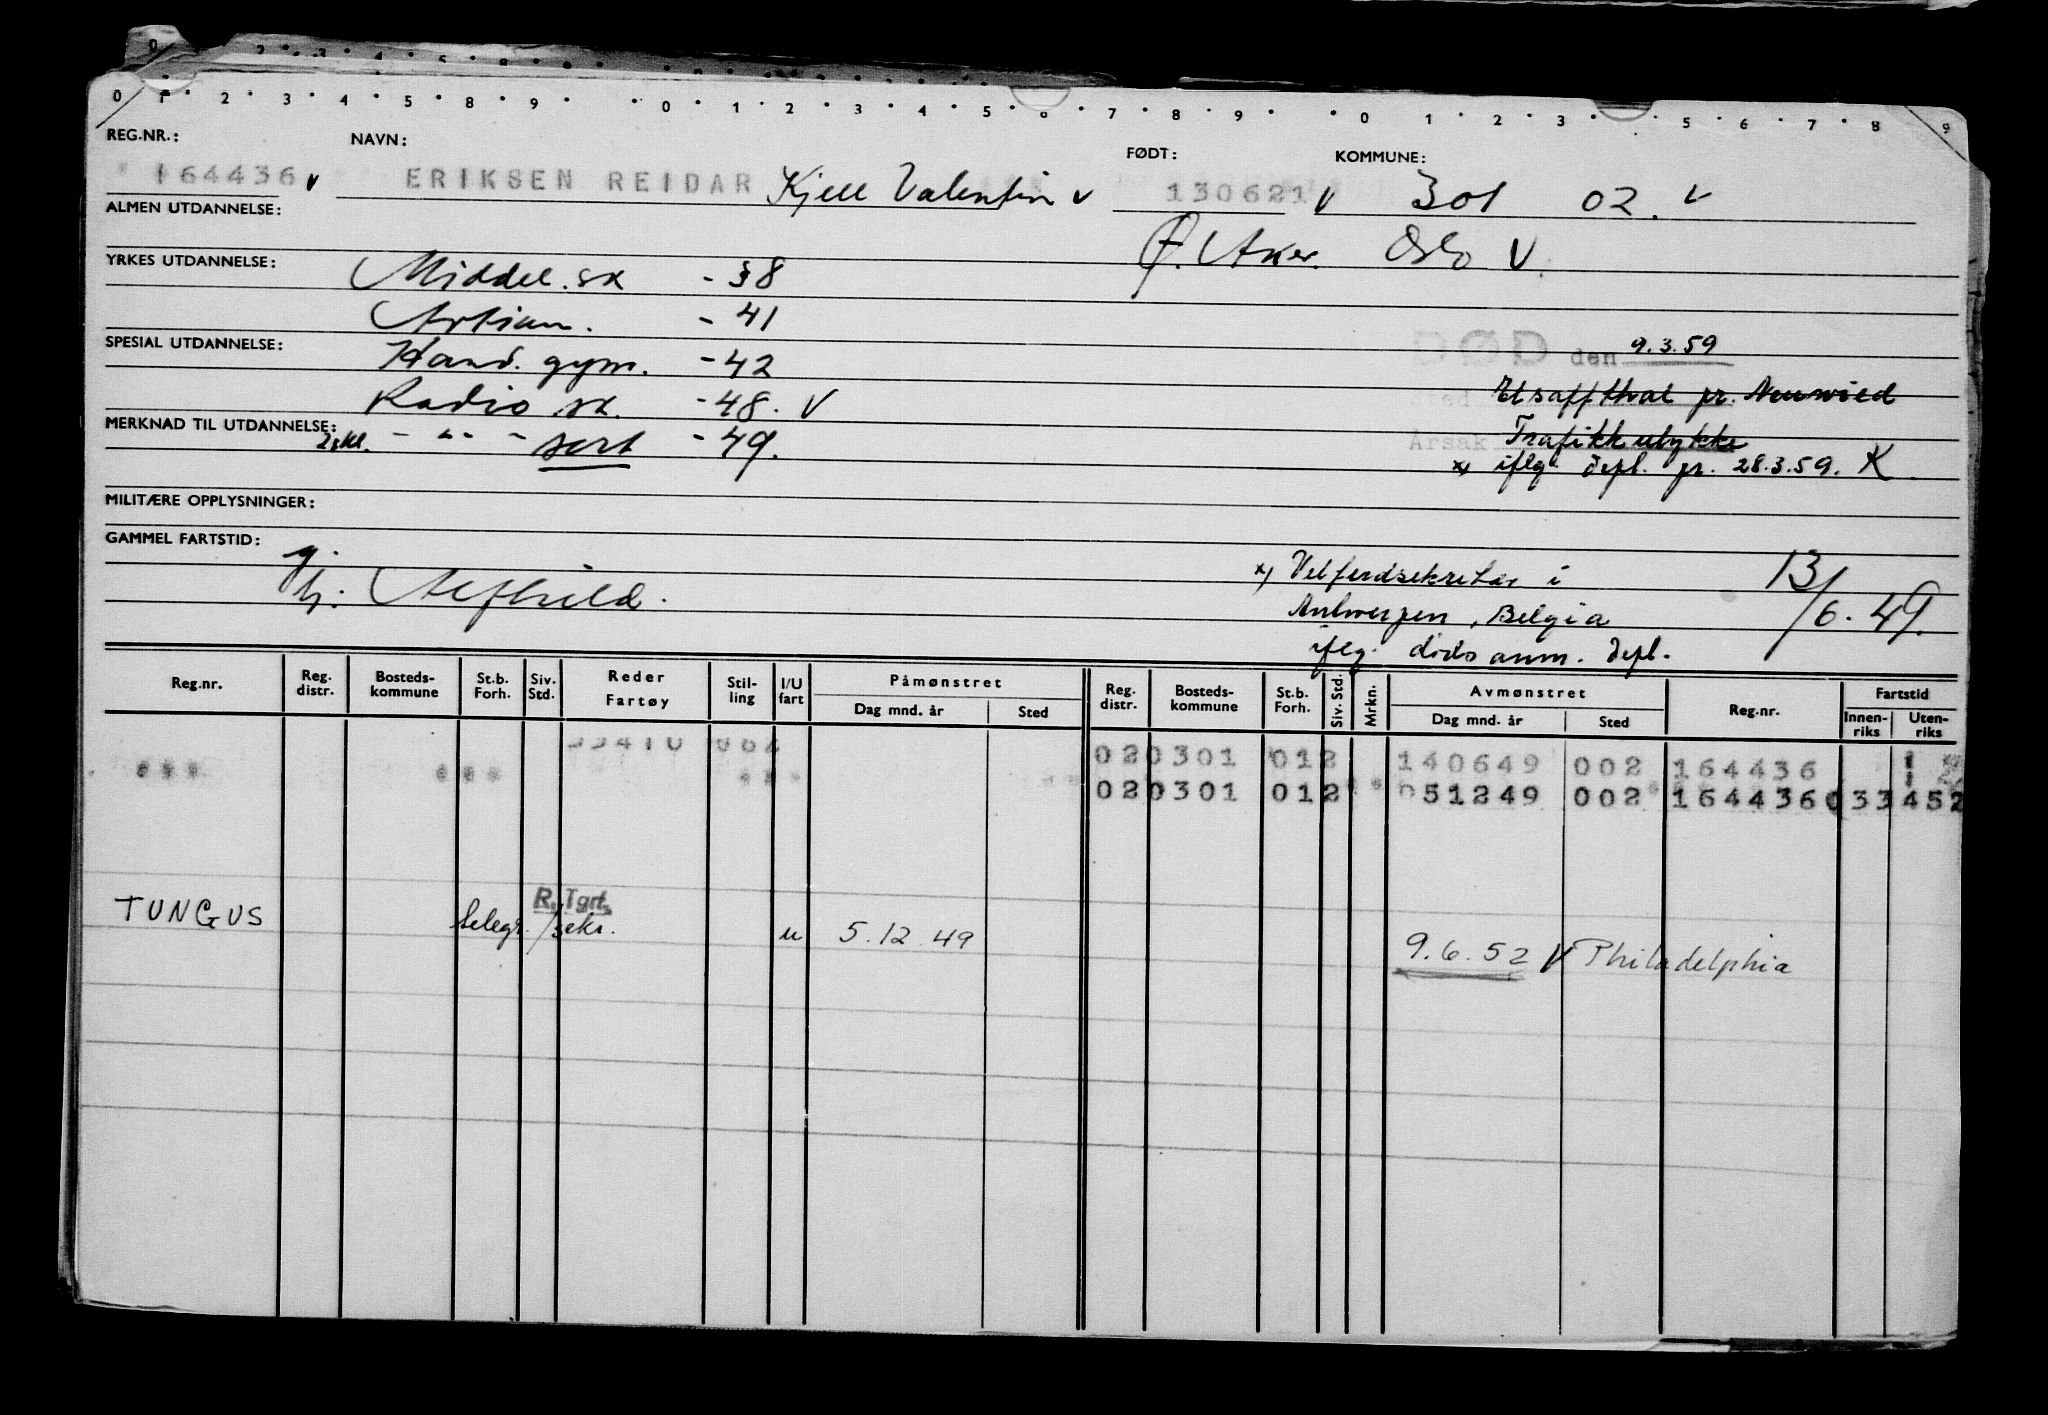 0 1 2 3 4 5 8 9 0 1 2 3 4 5 6 7 8 9 0 1 2 3 5 6 7 8 9
REG.NR.: NAVN: FØDT: KOMMUNE:
164436 v ERIKSEN REIDAR Kjell Valentin v 130621 v 301 02. v
ALMEN UTDANNELSE:
Ø. Aker. Oslo V.
YRKES UTDANNELSE: Middel.sk - 38
Artium. - 41
SPESIAL UTDANNELSE: Hand. gym. - 42
DØD den 9.3.59
Radio sk. - 48. V
Sted Etsaffthal pr. Neuwied
MERKNAD TIL UTDANNELSE: 2skl. - " - - sert - 49.
Årsak Trafikkulykke
x) iflg. depl. pr. 28.3.59. K
MILITÆRE OPPLYSNINGER:
GAMMEL FARTSTID:
x) Velferdsekretær i 13/6.49.
Antwerpen, Belgia
iflg. døds anm. depl.
Reg.nr. Reg. distr. Bosteds- kommune St.b. Forh. Siv. Std. Reder Fartøy Stil- ling I/U fart Påmønstret Dag mnd. år Sted Reg. distr. Bosteds- kommune St.b. Forh. Siv. Std. Mrkn. Avmønstret Dag mnd. år Sted Reg.nr. Fartstid Innen- riks Uten- riks
020301 012 140649 002 164436
020301 012 051249 002 164436 033 452
R.Tgrt.
TUNGUS telegr./sekr. u 5.12.49 9.6.52 V Philadelphia